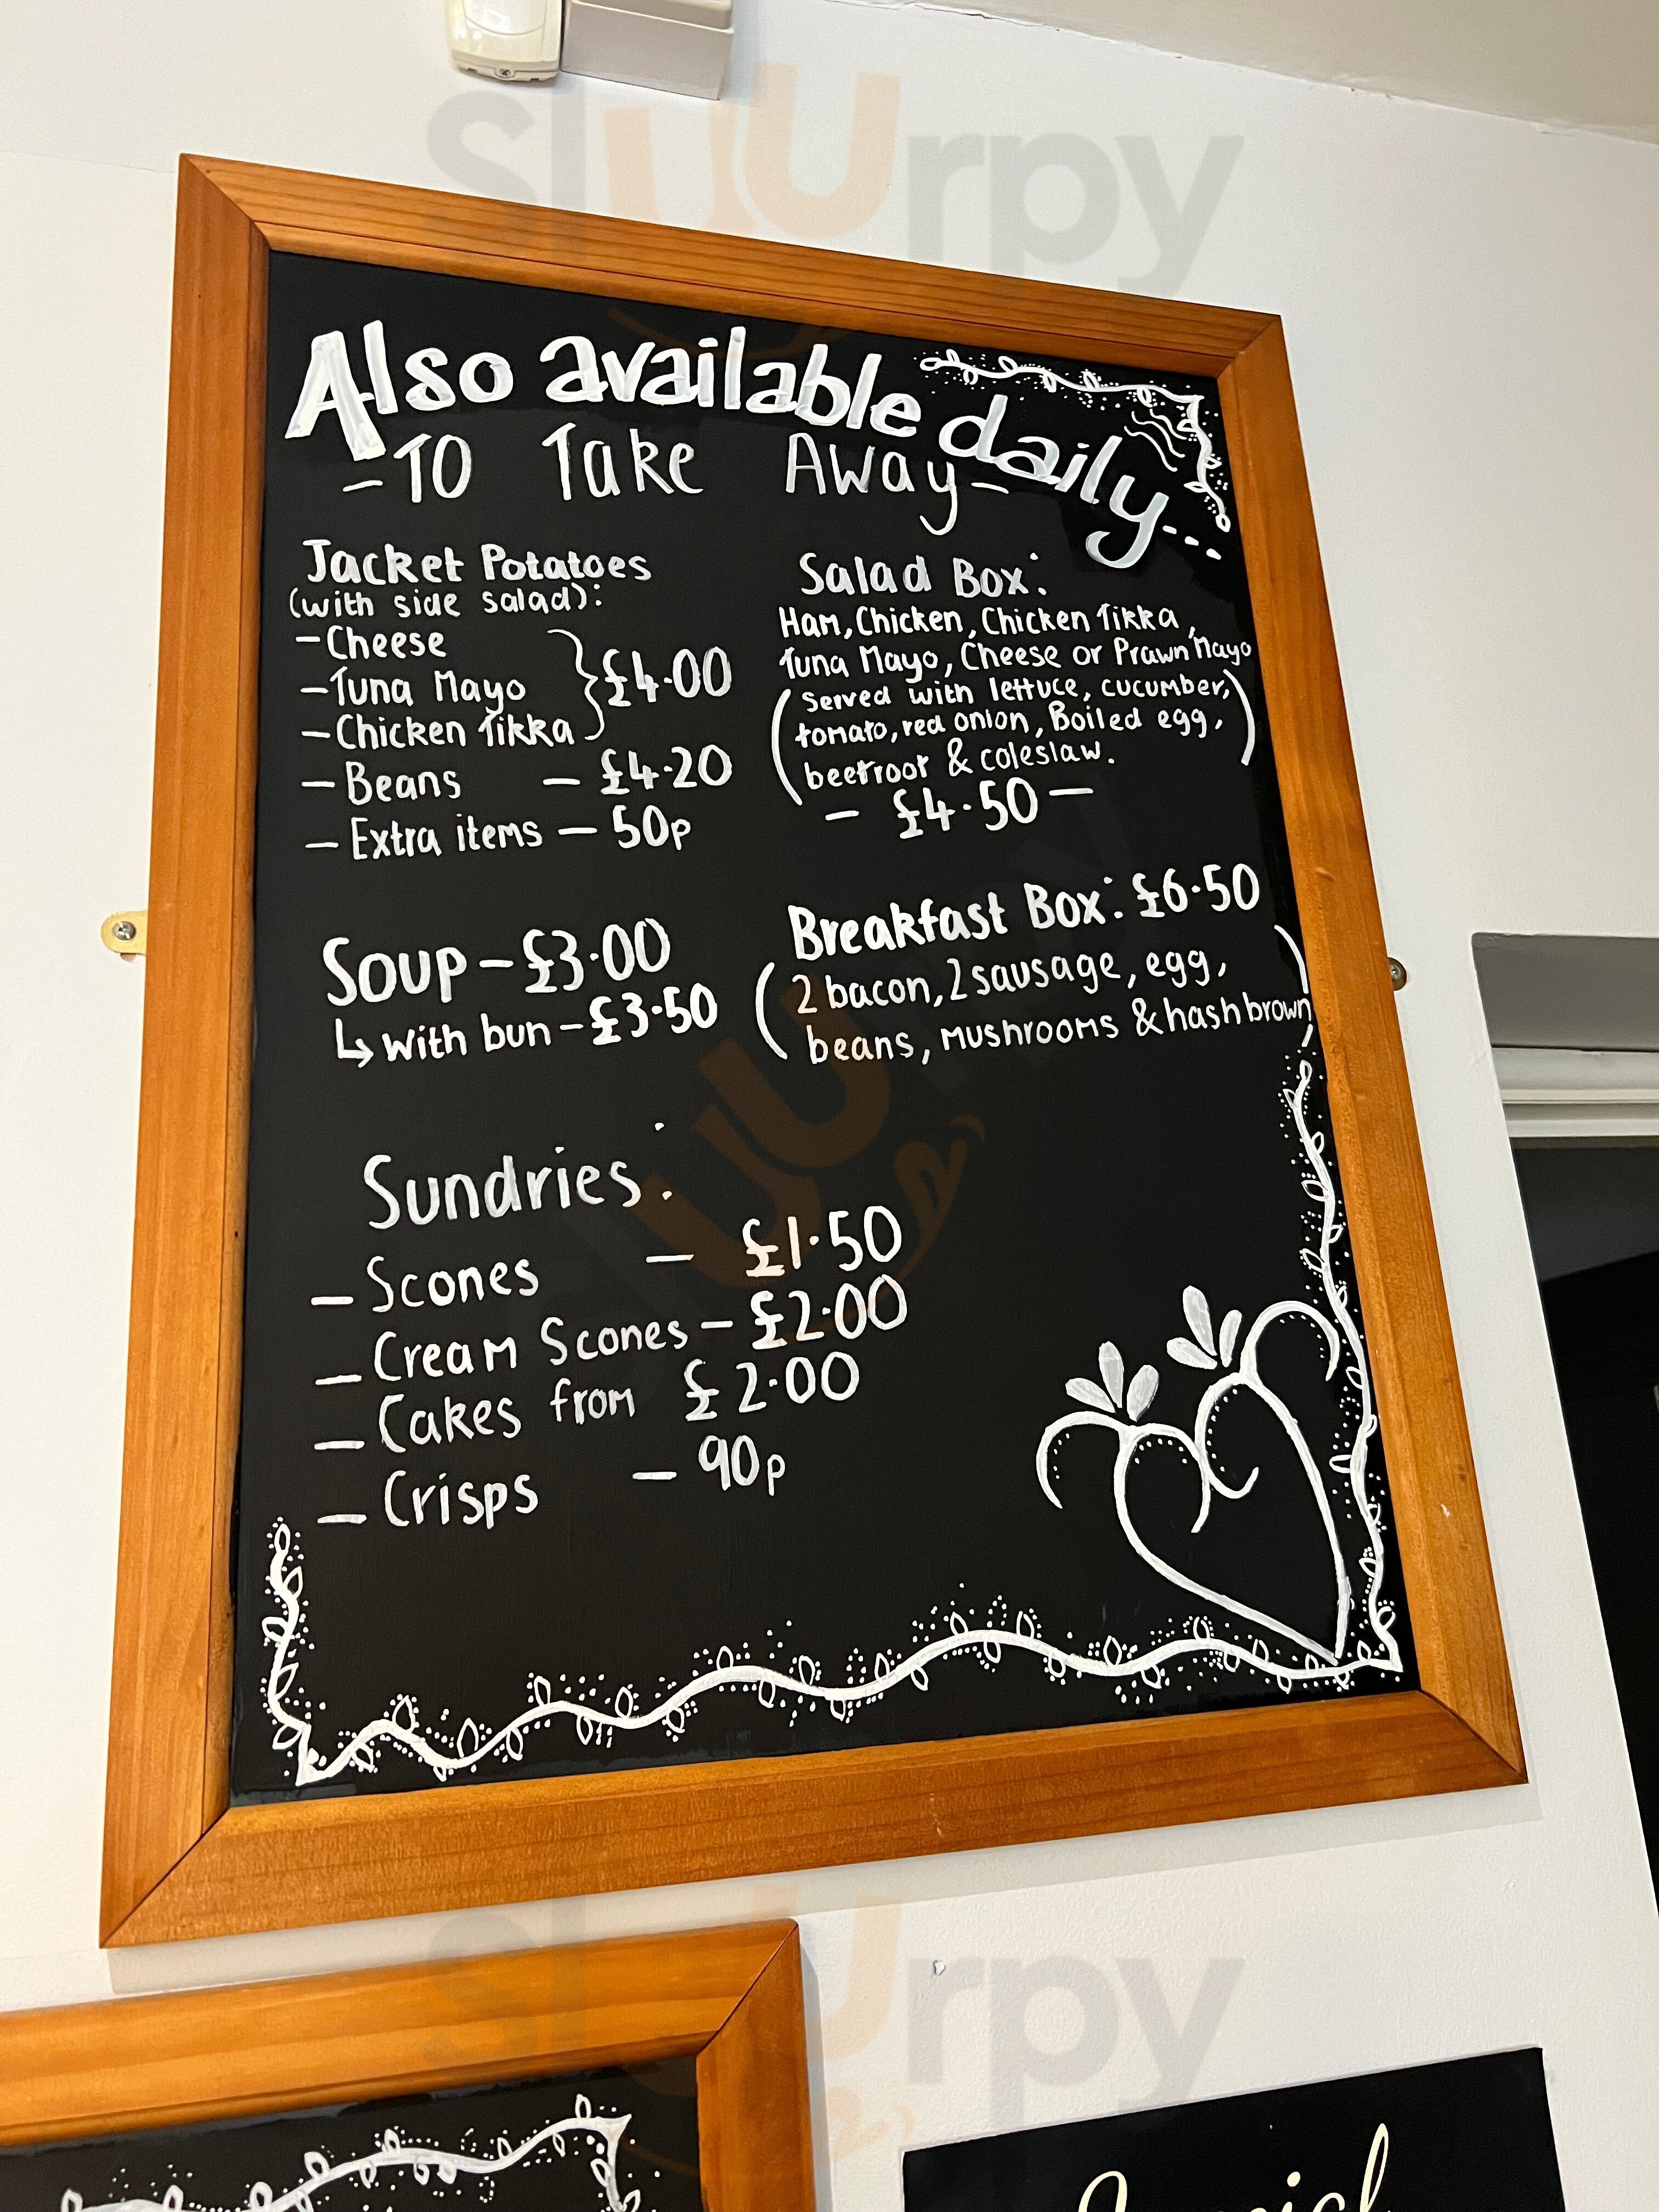 sluurpy
Also available daily...
-TO Take Away-
Jacket Potatoes
(with side salad):
- Cheese
- Tuna Mayo
- Chicken Tikka
£4.00
- Beans - £4.20
- Extra items - 50p
Soup - £3.00
↳ with bun - £3.50
Salad Box:
Ham, Chicken, Chicken Tikka,
Tuna Mayo, Cheese or Prawn Mayo
(Served with lettuce, cucumber,
tomato, red onion, Boiled egg,
beetroot & coleslaw.)
- £4.50 -
Breakfast Box: £6.50
(2 bacon, 2 sausage, egg,
beans, mushrooms & hash brown)
Sundries:
- Scones - £1.50
- Cream Scones - £2.00
- Cakes from £2.00
- Crisps - 90p
sluurpy